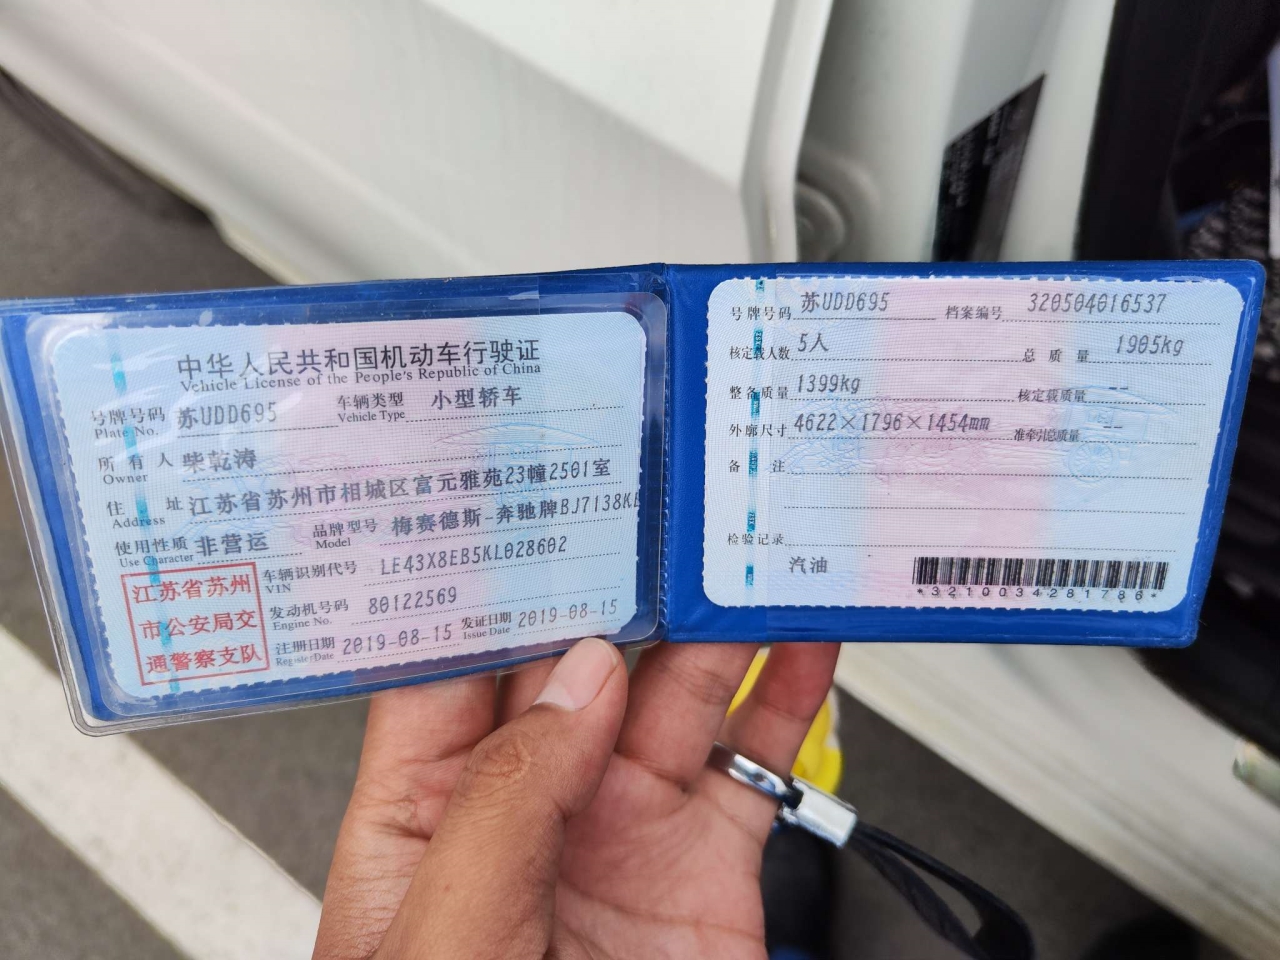 中华人民共和国机动车行驶证
Vehicle License of the People's Republic of China
号牌号码 苏UDD695 车辆类型 小型轿车
Plate No. Vehicle Type
所有人 柴乾涛
Owner
住址 江苏省苏州市相城区富元雅苑23幢2501室
Address
使用性质 非营运 品牌型号 梅赛德斯-奔驰牌BJ7138KE
Use Character Model
江苏省苏州
市公安局交
通警察支队
车辆识别代号 LE43X8EB5KL028602
VIN
发动机号码 80122569
Engine No.
注册日期 2019-08-15 发证日期 2019-08-15
Register Date Issue Date
号牌号码 苏UDD695 档案编号 320504016537
核定载人数 5人 总质量 1905kg
整备质量 1399kg 核定载质量 --
外廓尺寸 4622×1796×1454mm 准牵引总质量 --
备注
检验记录
汽油
*3210034281786*